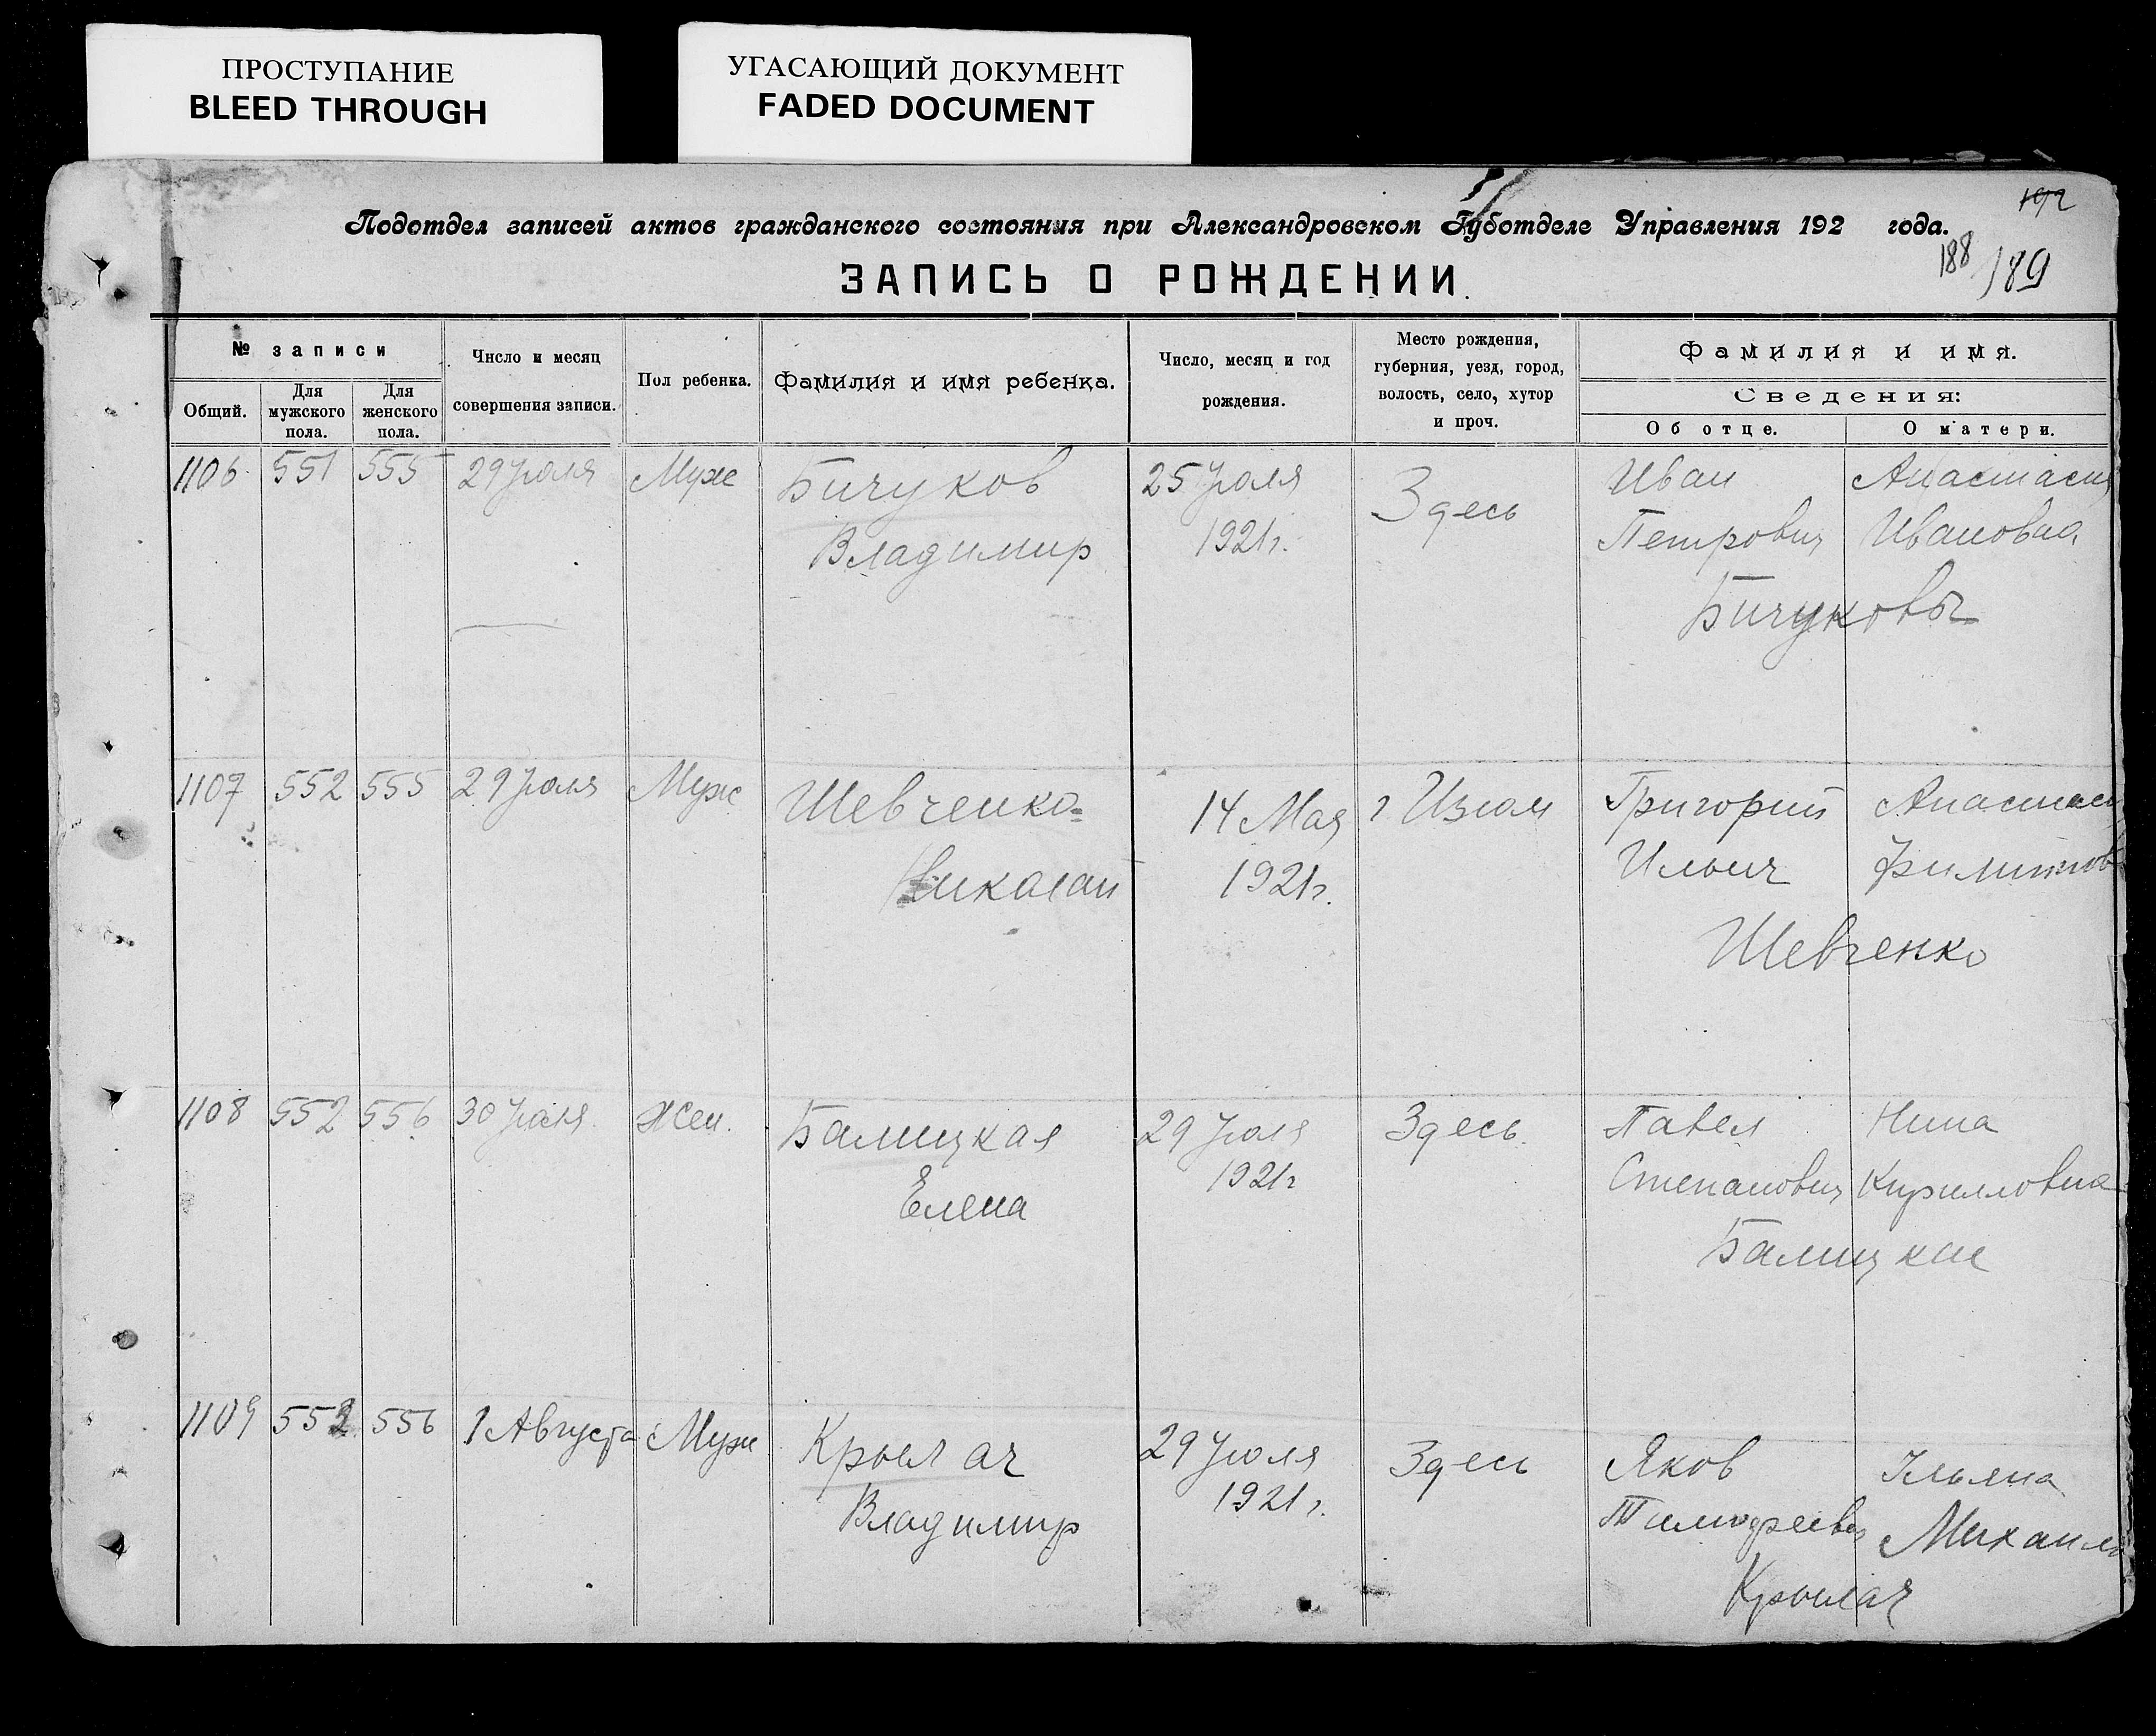 ПРОСТУПАНИЕ
BLEED THROUGH
УГАСАЮЩИЙ ДОКУМЕНТ
FADED DOCUMENT
Подотдел записей актов гражданского состояния при Александровском Губотделе Управления 192 года.
188 189
ЗАПИСЬ О РОЖДЕНИИ.
№ записи
Общий.
Для мужского пола.
Для женского пола.
Число и месяц совершения записи.
Пол ребенка.
Фамилия и имя ребенка.
Число, месяц и год рождения.
Место рождения, губерния, уезд, город, волость, село, хутор и проч.
Фамилия и имя.
Сведения:
Об отце.
О матери.
1106 551 555 29 Июля Муж Бичуков 25 Июля Здесь Иван Анастасия
Владимир 1921 г. Петрович Ивановна
Бичуковы
1107 552 555 29 Июля Муж Шевченко= 14 Мая г Изюм Григорий Анастаси
Николай 1921 г. Ильич Филиппов
Шевченко
1108 552 556 30 Июля Жен. Балицкая 29 Июля Здесь. Павел Нина
Елена 1921 г Степанович Кирилловна
Балицкие
1109 553 556 1 Августа Муж Крылач 29 Июля Здесь Яков Ульяна
Владимир 1921 г. Тимофеевич Михайло
Крылач